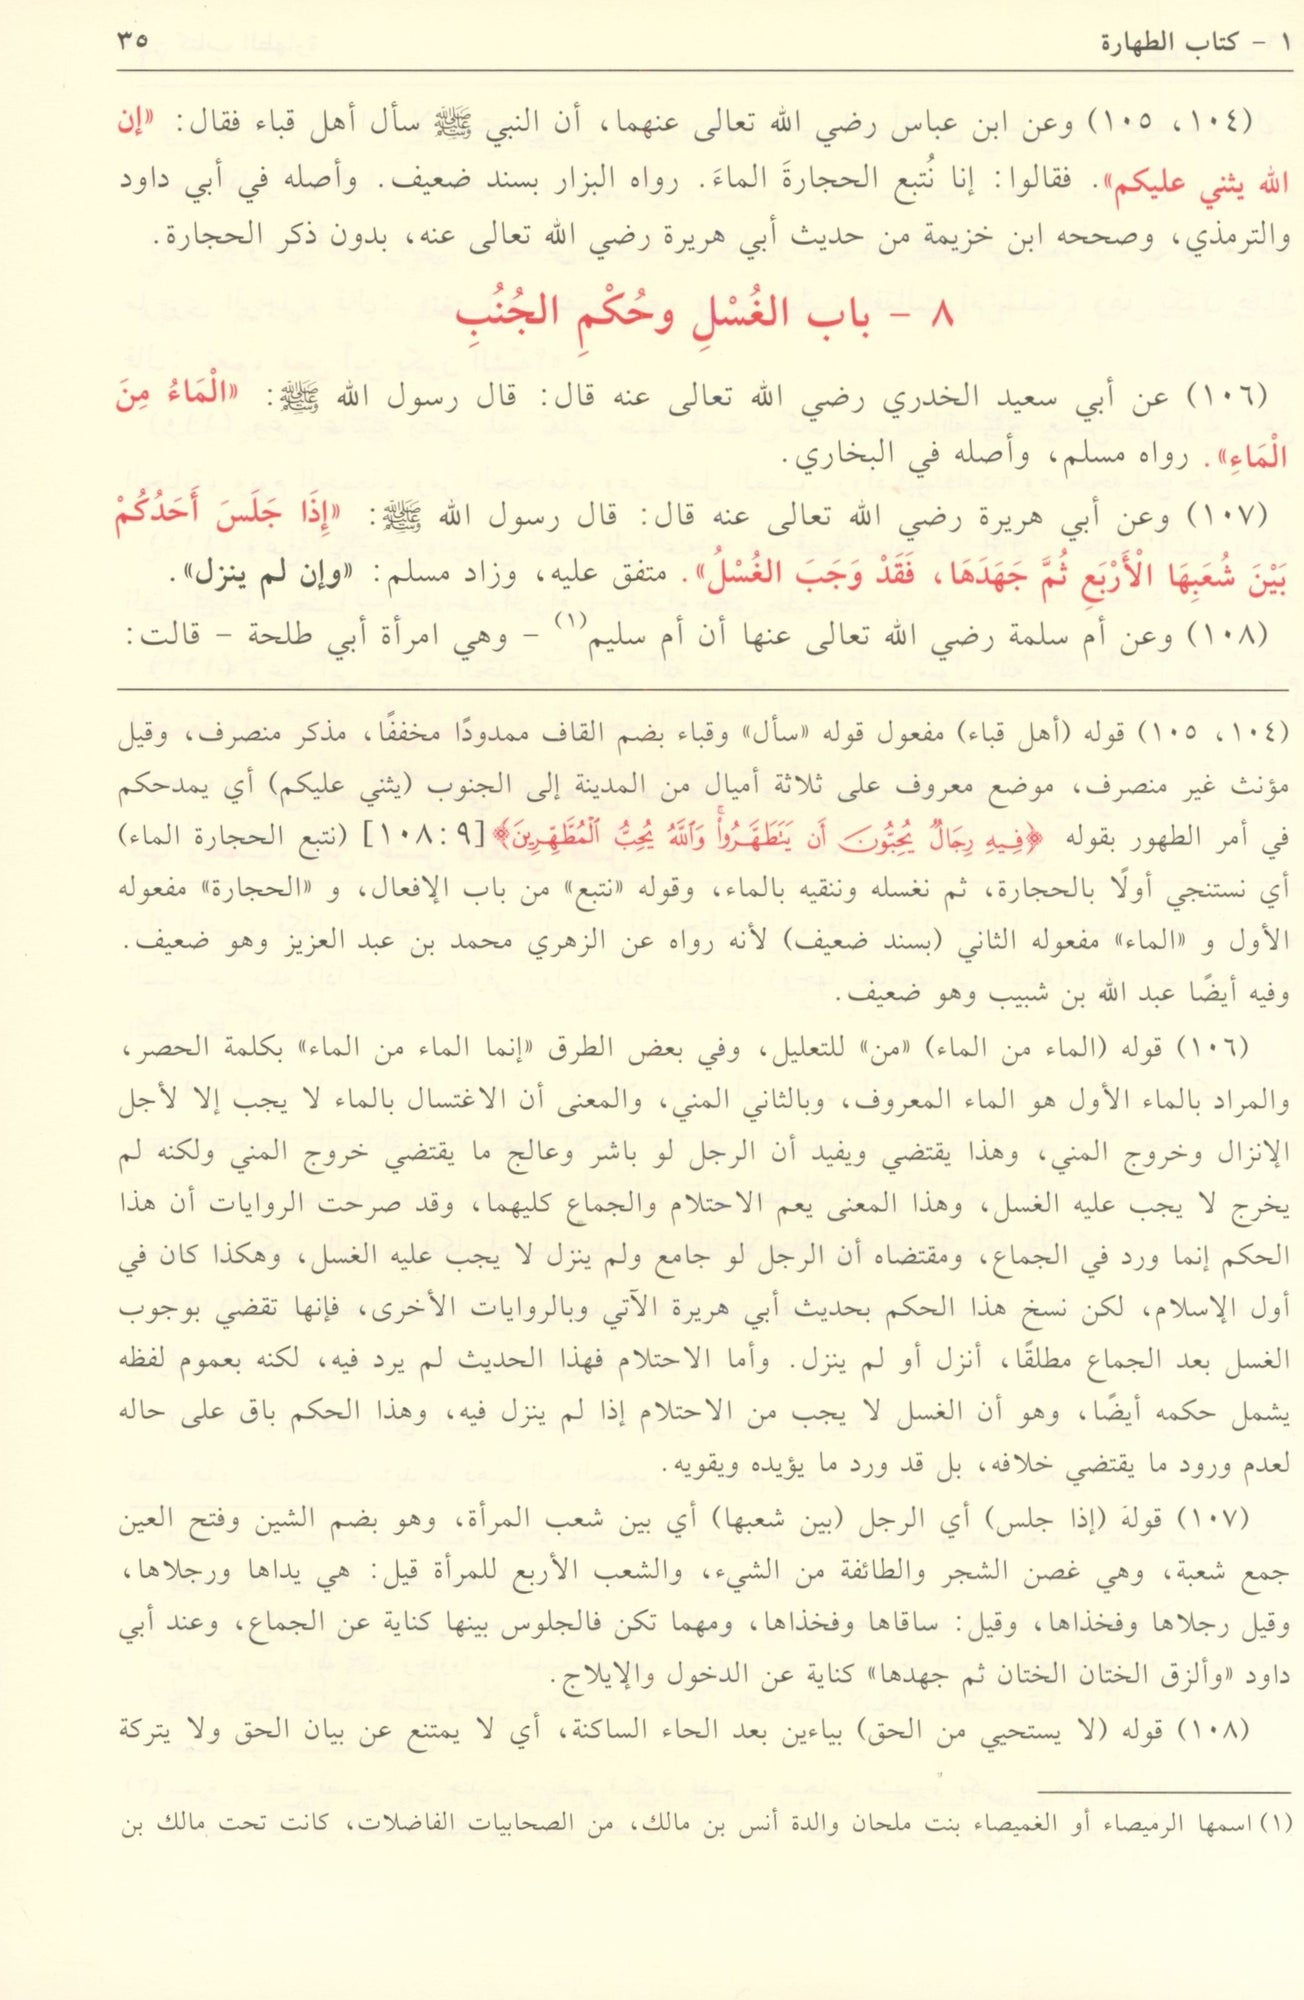 ١ - كتاب الطهارة
٣٥
(١٠٤، ١٠٥) وعن ابن عباس رضي الله تعالى عنهما، أن النبي ﷺ سأل أهل قباء فقال: «إن
الله يثني عليكم». فقالوا: إنا نُتبع الحجارةَ الماءَ. رواه البزار بسند ضعيف. وأصله في أبي داود
والترمذي، وصححه ابن خزيمة من حديث أبي هريرة رضي الله تعالى عنه، بدون ذكر الحجارة.
٨ - باب الغُسْلِ وحُكْمِ الجُنُبِ
(١٠٦) عن أبي سعيد الخدري رضي الله تعالى عنه قال: قال رسول الله ﷺ: «الْمَاءُ مِنَ
الْمَاءِ». رواه مسلم، وأصله في البخاري.
(١٠٧) وعن أبي هريرة رضي الله تعالى عنه قال: قال رسول الله ﷺ: «إِذَا جَلَسَ أَحَدُكُمْ
بَيْنَ شُعَبِهَا الْأَرْبَعِ ثُمَّ جَهَدَهَا، فَقَدْ وَجَبَ الغُسْلُ». متفق عليه، وزاد مسلم: «وإن لم ينزل».
(١٠٨) وعن أم سلمة رضي الله تعالى عنها أن أم سليم(١) - وهي امرأة أبي طلحة - قالت:
(١٠٤، ١٠٥) قوله (أهل قباء) مفعول قوله «سأل» وقباء بضم القاف ممدودًا مخففًا، مذكر منصرف، وقيل
مؤنث غير منصرف، موضع معروف على ثلاثة أميال من المدينة إلى الجنوب (يثني عليكم) أي يمدحكم
في أمر الطهور بقوله ﴿فِيهِ رِجَالٌ يُحِبُّونَ أَن يَتَطَهَّرُواْۚ وَٱللَّهُ يُحِبُّ ٱلْمُطَّهِّرِينَ﴾ [٩: ١٠٨] (نتبع الحجارة الماء)
أي نستنجي أولًا بالحجارة، ثم نغسله وننقيه بالماء، وقوله «نتبع» من باب الإفعال، و «الحجارة» مفعوله
الأول و «الماء» مفعوله الثاني (بسند ضعيف) لأنه رواه عن الزهري محمد بن عبد العزيز وهو ضعيف.
وفيه أيضًا عبد الله بن شبيب وهو ضعيف.
(١٠٦) قوله (الماء من الماء) «من» للتعليل، وفي بعض الطرق «إنما الماء من الماء» بكلمة الحصر،
والمراد بالماء الأول هو الماء المعروف، وبالثاني المني، والمعنى أن الاغتسال بالماء لا يجب إلا لأجل
الإنزال وخروج المني، وهذا يقتضي ويفيد أن الرجل لو باشر وعالج ما يقتضي خروج المني ولكنه لم
يخرج لا يجب عليه الغسل، وهذا المعنى يعم الاحتلام والجماع كليهما، وقد صرحت الروايات أن هذا
الحكم إنما ورد في الجماع، ومقتضاه أن الرجل لو جامع ولم ينزل لا يجب عليه الغسل، وهكذا كان في
أول الإسلام، لكن نسخ هذا الحكم بحديث أبي هريرة الآتي وبالروايات الأخرى، فإنها تقضي بوجوب
الغسل بعد الجماع مطلقًا، أنزل أو لم ينزل. وأما الاحتلام فهذا الحديث لم يرد فيه، لكنه بعموم لفظه
يشمل حكمه أيضًا، وهو أن الغسل لا يجب من الاحتلام إذا لم ينزل فيه، وهذا الحكم باق على حاله
لعدم ورود ما يقتضي خلافه، بل قد ورد ما يؤيده ويقويه.
(١٠٧) قولهَ (إذا جلس) أي الرجل (بين شعبها) أي بين شعب المرأة، وهو بضم الشين وفتح العين
جمع شعبة، وهي غصن الشجر والطائفة من الشيء، والشعب الأربع للمرأة قيل: هي يداها ورجلاها،
وقيل رجلاها وفخذاها، وقيل: ساقاها وفخذاها، ومهما تكن فالجلوس بينها كناية عن الجماع، وعند أبي
داود «وألزق الختان الختان ثم جهدها» كناية عن الدخول والإيلاج.
(١٠٨) قوله (لا يستحيي من الحق) بياءين بعد الحاء الساكنة، أي لا يمتنع عن بيان الحق ولا يتركة
(١) اسمها الرميصاء أو الغميصاء بنت ملحان والدة أنس بن مالك، من الصحابيات الفاضلات، كانت تحت مالك بن